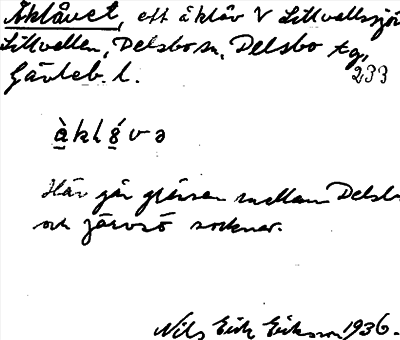 Åklåvet, ett åklåv V Lillvallssjön
Lillvallen, Delsbo sn, Delsbo tg,
Gävleb. l. 233
àkló̱və
Här går gränsen mellan Delsbo
och Järvsö socknar.
Nils Erik Eriksson 1936.